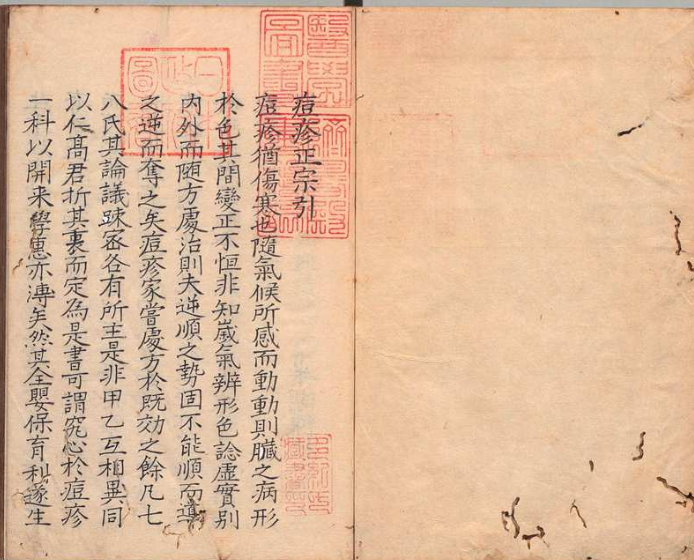 痘疹正宗引
痘疹猶傷寒也隨氣候所感而動動則臟之病形
於色其間變正不恒非知歲氣辨形色諗虛實別
内外而随方處治則夫逆順之勢固不能順而導
之逆而奪之矣痘疹家嘗處方於既効之餘凡七
八氏其論議踈密各有所主是非甲乙互相異同
以仁髙君折其裏而定為是書可謂究心於痘疹
一科以開来學惠亦溥矣然其全嬰保育利遂生